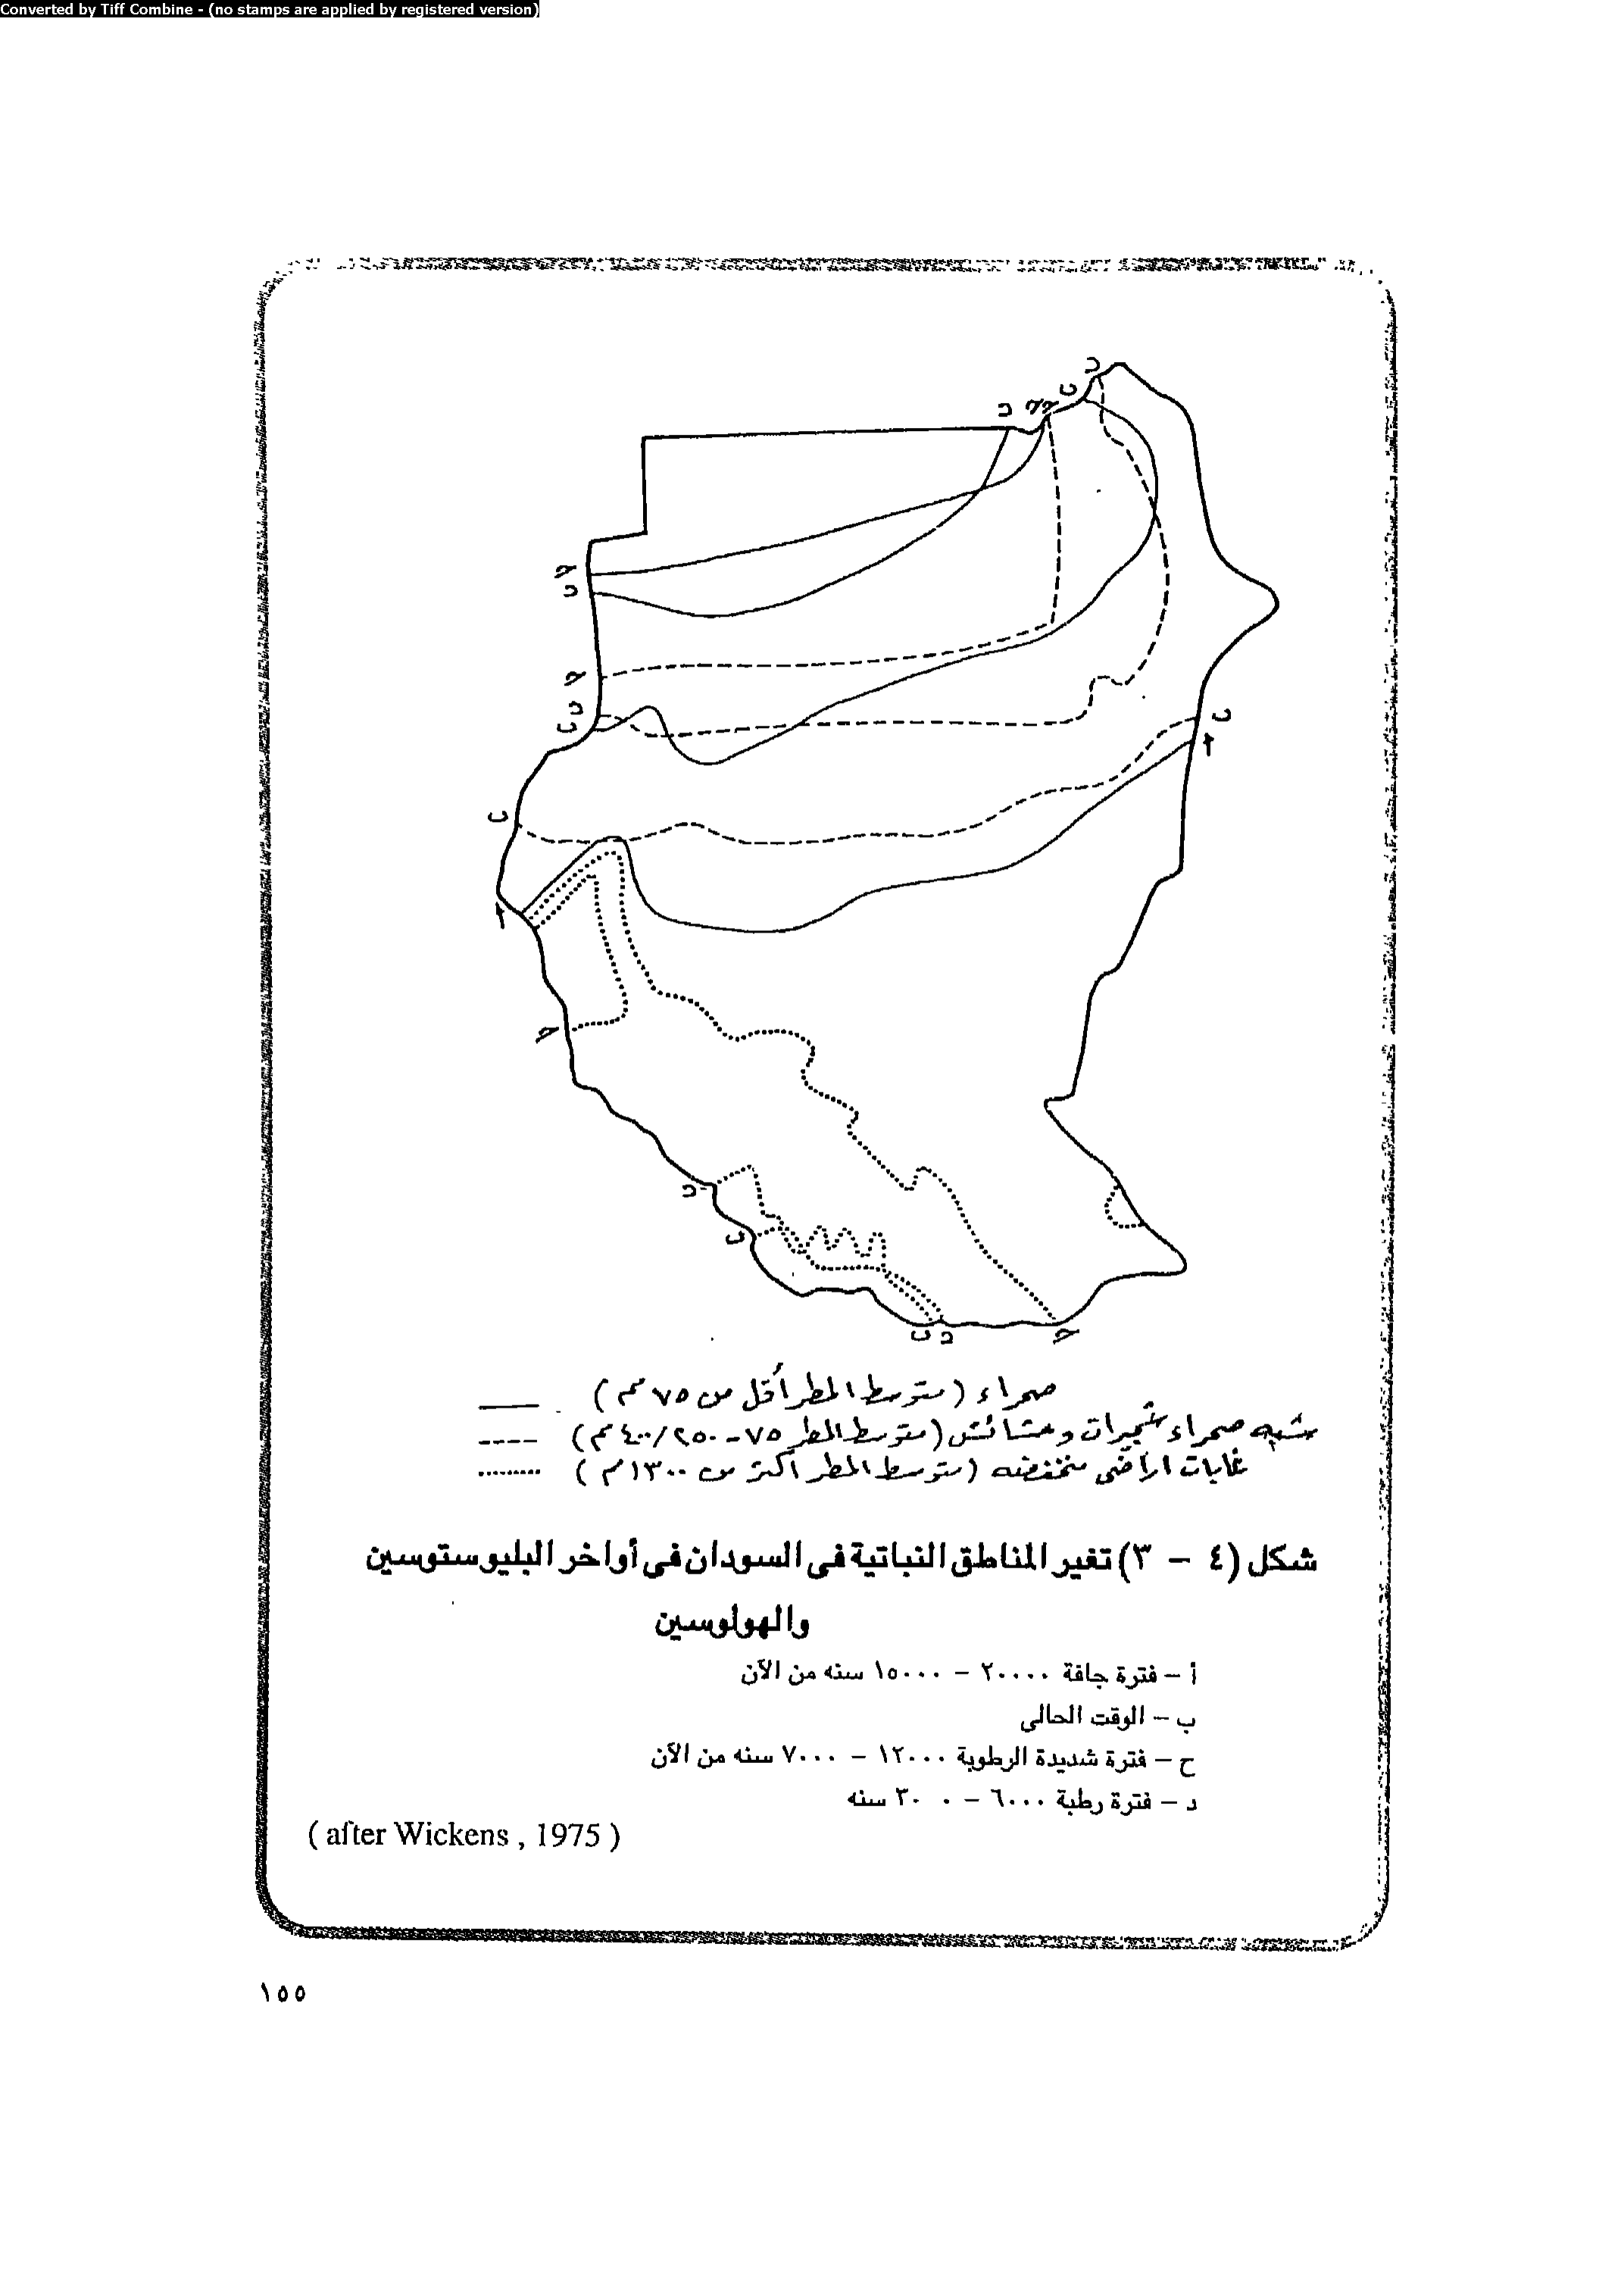 Converted by Tiff Combine - (no stamps are applied by registered version)
د
ب
د
ح
ح
ح
د
ح
د
ب
ب
أ
ب
أ
ح
د
ب
ب د
ح
صحراء (متوسط المطر أقل من ٧٥ مم)
شبه صحراء شجيرات وحشائش (متوسط المطر ٧٥ - ٢٥٠/٤٠٠ مم)
غابات اراضى منخفضه (متوسط المطر أكثر من ١٣٠٠ م)
شكل (٤ - ٣) تغير المناطق النباتية فى السودان فى أواخر البليوستوسين
والهولوسين
أ - فترة جافة ٢٠٠٠٠ - ١٥٠٠٠ سنه من الآن
ب - الوقت الحالى
ح - فترة شديدة الرطوبة ١٢٠٠٠ - ٧٠٠٠ سنه من الآن
د - فترة رطبة ٦٠٠٠ - ٣٠٠٠ سنه
( after Wickens , 1975 )
١٥٥